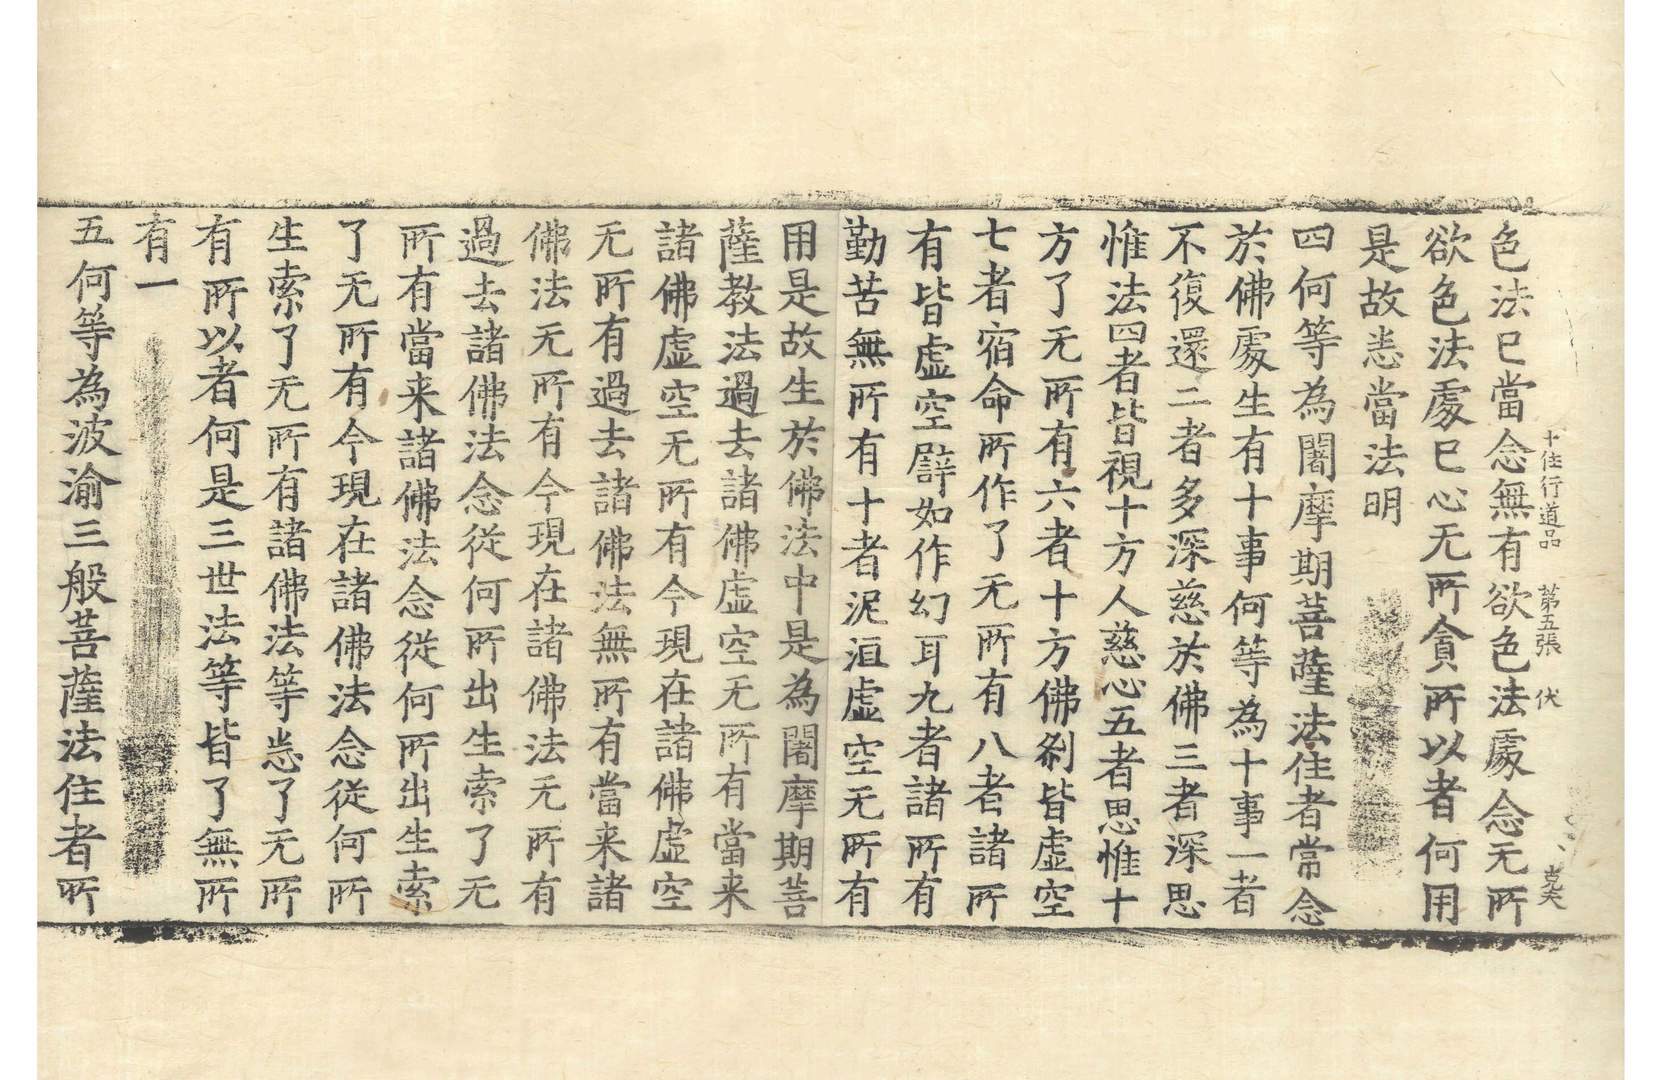 十住行道品 第五張 伏
色法已當念無有欲色法處念无所
欲色法處已心无所貪所以者何用
是故悉當法明
四何等為闍摩期菩薩法住者常念
於佛處生有十事何等為十事一者
不復還二者多深慈於佛三者深思
惟法四者皆視十方人慈心五者思惟十
方了无所有六者十方佛刹皆虛空
七者宿命所作了无所有八者諸所
有皆虛空譬如作幻耳九者諸所有
勤苦無所有十者泥洹虛空无所有
用是故生於佛法中是為闍摩期菩
薩教法過去諸佛虛空无所有當来
諸佛虛空无所有今現在諸佛虛空
无所有過去諸佛法無所有當来諸
佛法无所有今現在諸佛法无所有
過去諸佛法念從何所出生索了无
所有當来諸佛法念從何所出生索
了无所有今現在諸佛法念從何所
生索了无所有諸佛法等悉了无所
有所以者何是三世法等皆了無所
有一
五何等為波渝三般菩薩法住者所